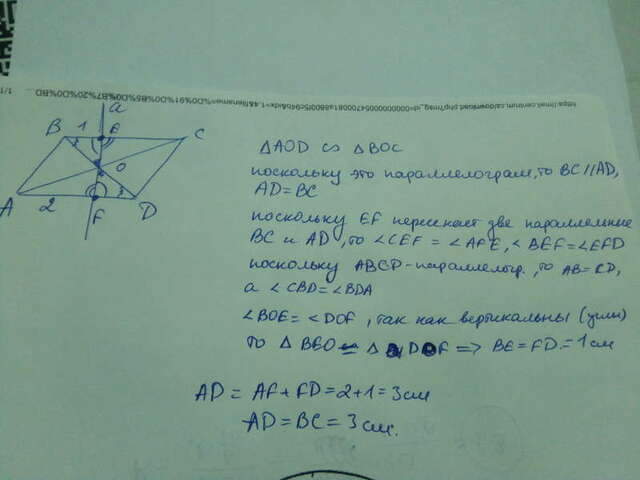 a
B 1 E C
O
A 2 F D
△AOD ∽ △BOC
поскольку это параллелограм, то BC // AD,
AD = BC
поскольку EF пересекает две параллельные
BC и AD, то ∠CEF = ∠AFE, ∠BEF = ∠EFD
поскольку ABCD - параллелогр., то AB = CD,
а ∠CBD = ∠BDA
∠BOE = ∠DOF, так как вертикальны (углы)
то △ BEO = △ DOF => BE = FD = 1 см
AD = AF + FD = 2 + 1 = 3 см
AD = BC = 3 см.